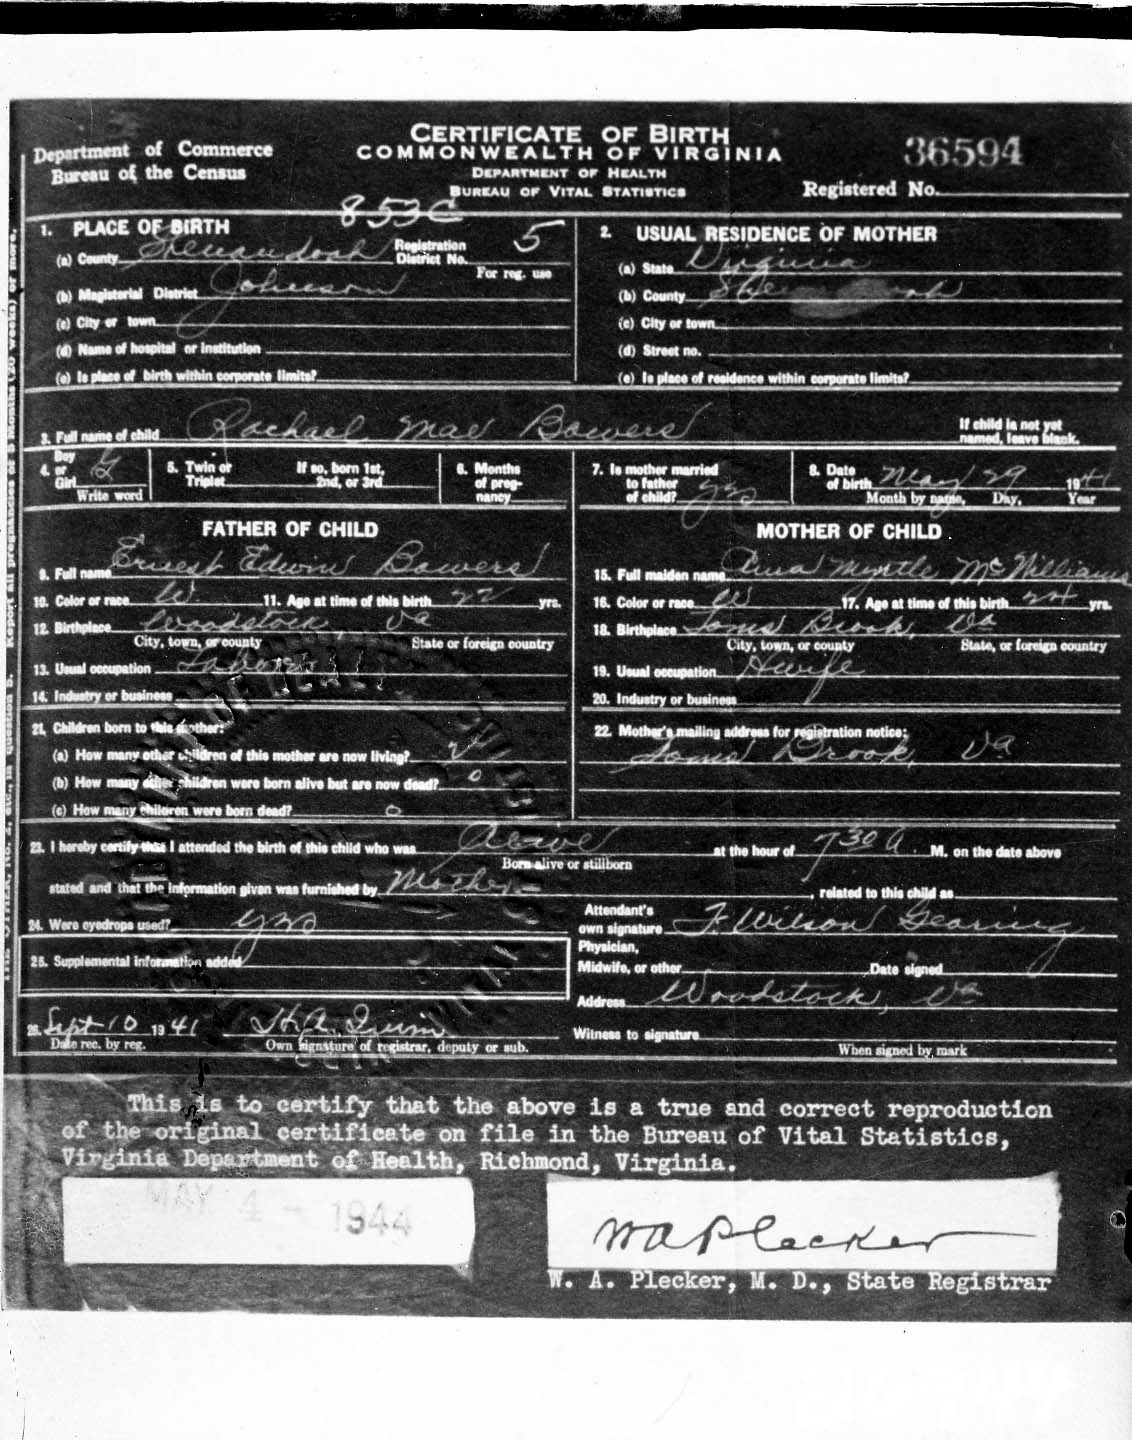 CERTIFICATE OF BIRTH
COMMONWEALTH OF VIRGINIA
DEPARTMENT OF HEALTH
BUREAU OF VITAL STATISTICS
Department of Commerce
Bureau of the Census
36594
Registered No.
853C
1. PLACE OF BIRTH
(a) County Shenandoah Registration District No. 5
For reg. use
(b) Magisterial District Johnson
(c) City or town
(d) Name of hospital or institution
(e) Is place of birth within corporate limits?
2. USUAL RESIDENCE OF MOTHER
(a) State Virginia
(b) County Shenandoah
(c) City or town
(d) Street no.
(e) Is place of residence within corporate limits?
3. Full name of child Rachael Mae Bowers
If child is not yet named, leave blank.
4. Boy or Girl G
Write word
5. Twin or Triplet
If so, born 1st, 2nd, or 3rd
6. Months of pregnancy
7. Is mother married to father of child? yes
8. Date of birth May 29 1941
Month by name, Day, Year
FATHER OF CHILD
9. Full name Ernest Edwin Bowers
10. Color or race W 11. Age at time of this birth 22 yrs.
12. Birthplace Woodstock, Va
City, town, or county State or foreign country
13. Usual occupation Laborer
14. Industry or business
MOTHER OF CHILD
15. Full maiden name Myrtle McWilliams
16. Color or race W 17. Age at time of this birth 24 yrs.
18. Birthplace Toms Brook, Va
City, town, or county State, or foreign country
19. Usual occupation Hwife
20. Industry or business
21. Children born to this mother:
(a) How many other children of this mother are now living? 2
(b) How many other children were born alive but are now dead? 0
(c) How many children were born dead? 0
22. Mother's mailing address for registration notice:
Toms Brook, Va
23. I hereby certify that I attended the birth of this child who was Alive at the hour of 7 30 A. M. on the date above
Born alive or stillborn
stated and that the information given was furnished by Mother, related to this child as
24. Were eyedrops used? yes
25. Supplemental information added
Attendant's own signature F. Wilson Gearing
Physician, Midwife, or other Date signed
Address Woodstock, Va
26. Sept 10 1941
Date rec. by reg. Own signature of registrar, deputy or sub.
Witness to signature
When signed by mark
This is to certify that the above is a true and correct reproduction
of the original certificate on file in the Bureau of Vital Statistics,
Virginia Department of Health, Richmond, Virginia.
MAY 4 - 1944
W A Plecker
W. A. Plecker, M. D., State Registrar